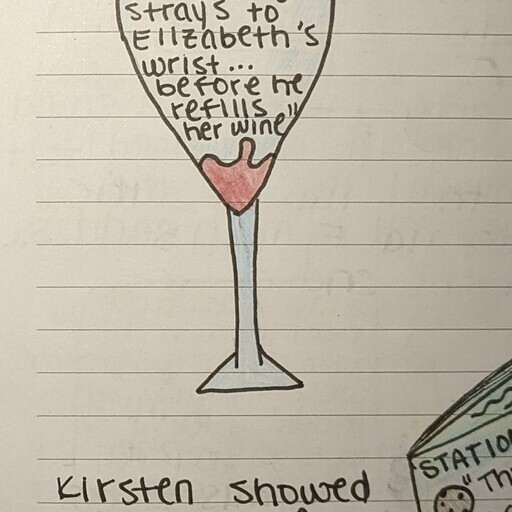 strays to
Elizabeth's
wrist...
before he
refills
her wine"
Kirsten showed
STATION
"Th